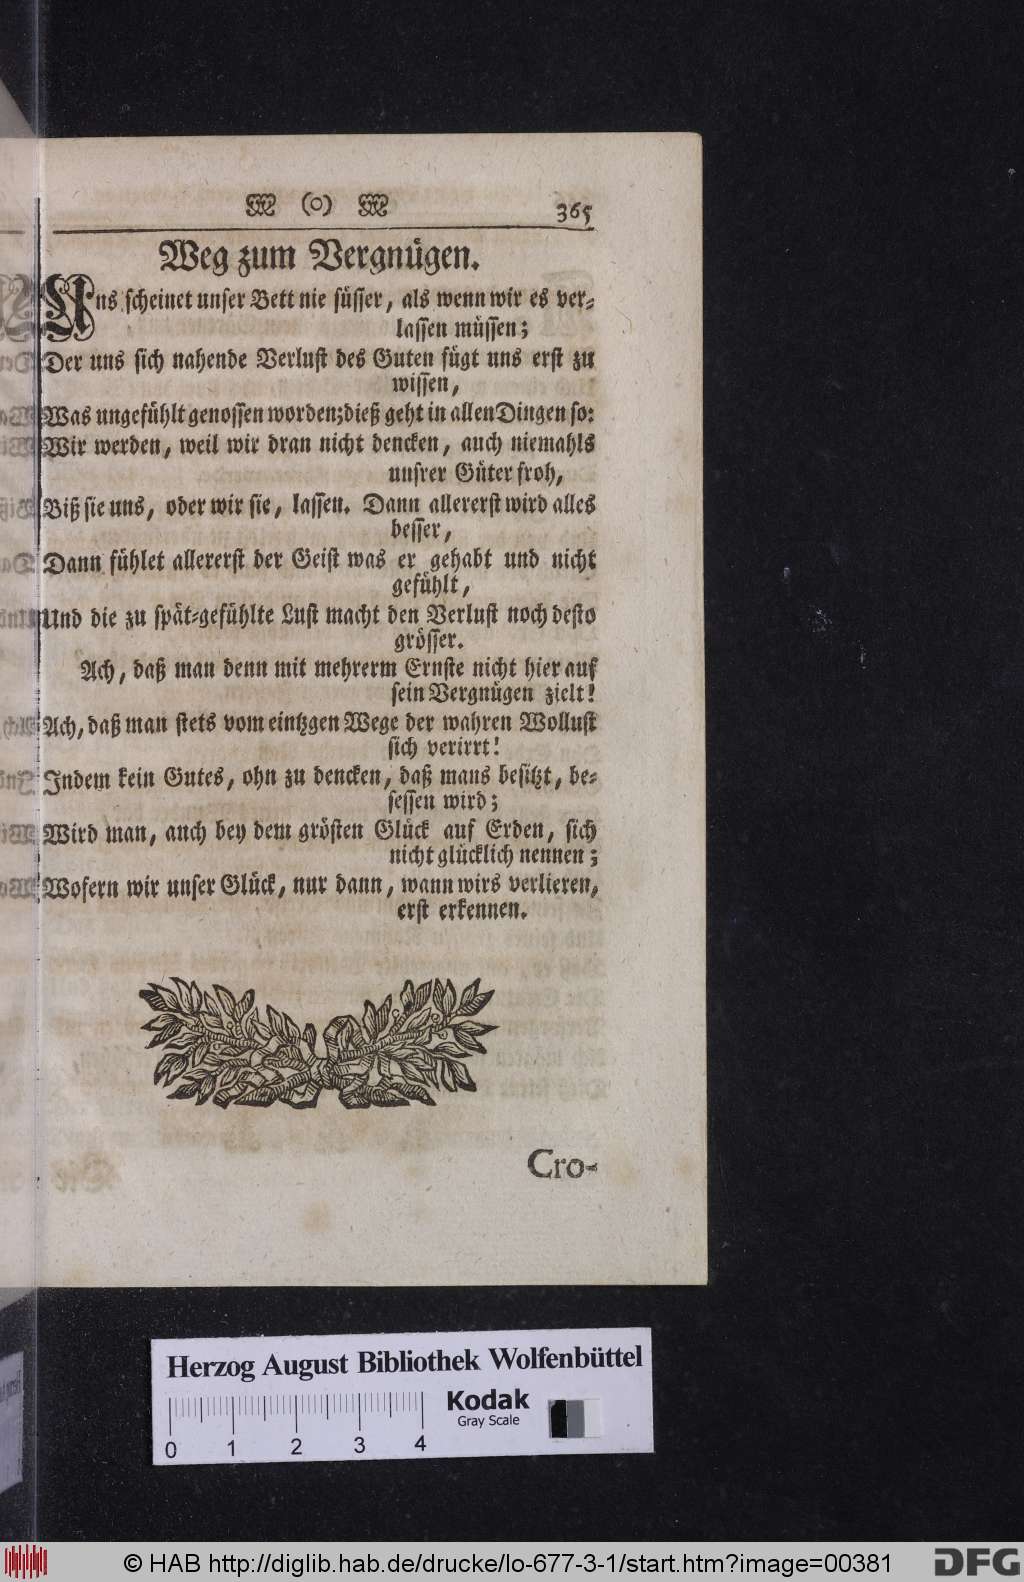 (o) 365
Weg zum Vergnügen.
Uns scheinet unser Bett nie süsser, als wenn wir es ver-
lassen müssen;
Der uns sich nahende Verlust des Guten fügt uns erst zu
wissen,
Was ungefühlt genossen worden; dieß geht in allen Dingen so:
Wir werden, weil wir dran nicht dencken, auch niemahls
unsrer Güter froh,
Biß sie uns, oder wir sie, lassen. Dann allererst wird alles
besser,
Dann fühlet allererst der Geist was er gehabt und nicht
gefühlt,
Und die zu spät-gefühlte Lust macht den Verlust noch desto
grösser.
Ach, daß man denn mit mehrerm Ernste nicht hier auf
sein Vergnügen zielt!
Ach, daß man stets vom eintzgen Wege der wahren Wollust
sich verirrt!
Indem kein Gutes, ohn zu dencken, daß mans besitzt, be-
sessen wird;
Wird man, auch bey dem grösten Glück auf Erden, sich
nicht glücklich nennen;
Wofern wir unser Glück, nur dann, wann wirs verlieren,
erst erkennen.
Cro-
Herzog August Bibliothek Wolfenbüttel
Kodak
Gray Scale
0 1 2 3 4
© HAB http://diglib.hab.de/drucke/lo-677-3-1/start.htm?image=00381
DFG